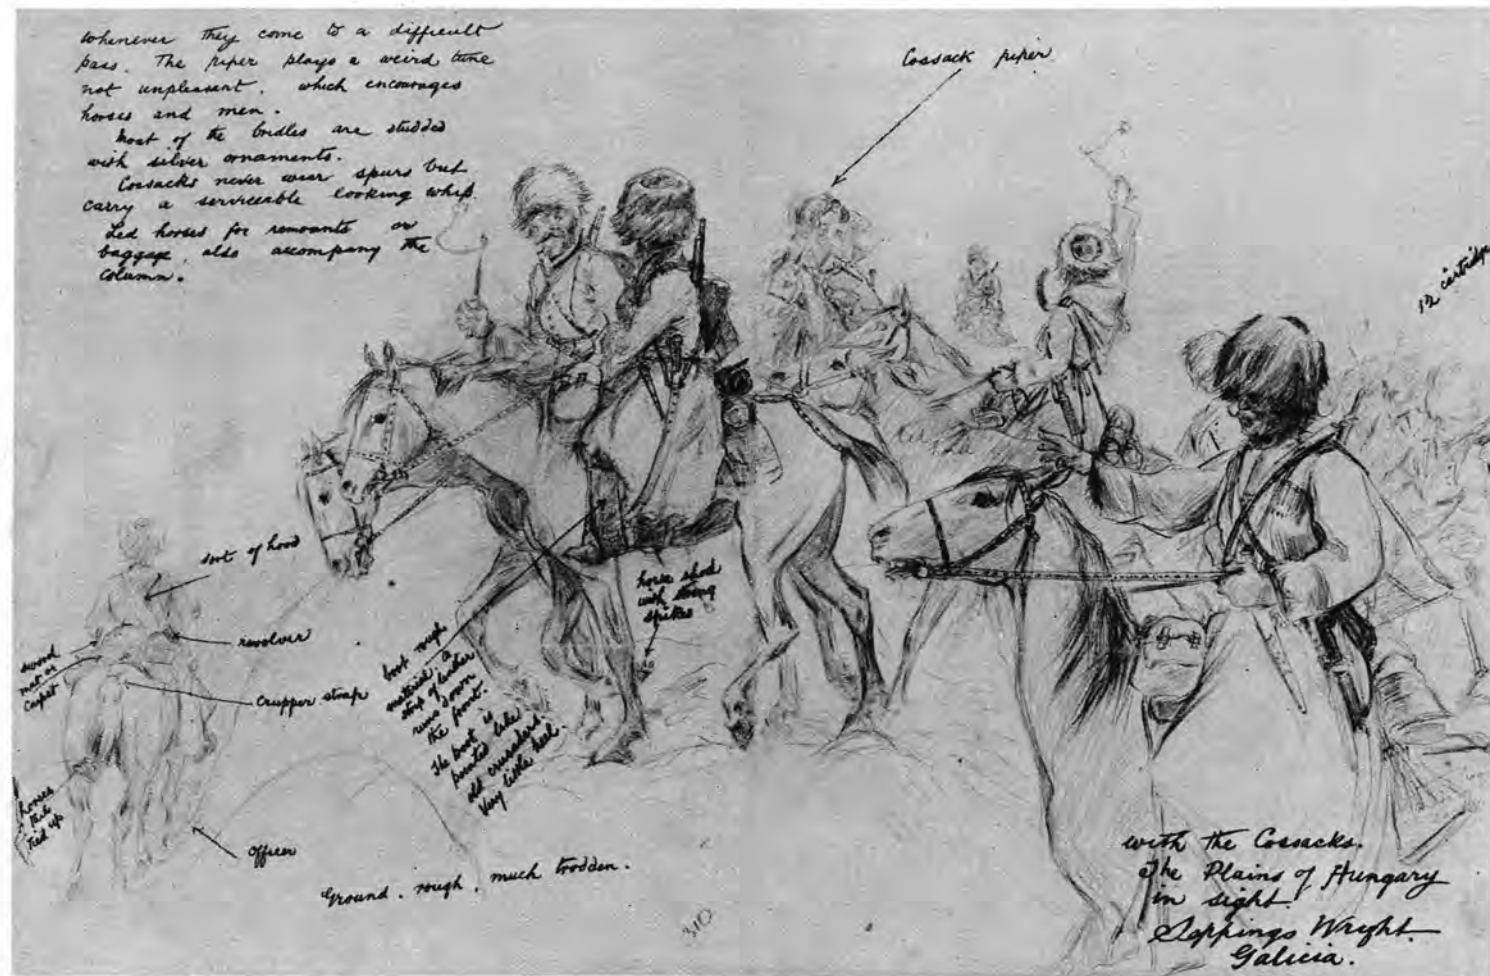 whenever they come to a difficult
pass. The piper plays a weird tune
not unpleasant, which encourages
horses and men.
Most of the bridles are studded
with silver ornaments.
Cossacks never wear spurs but
carry a serviceable looking whip.
Led horses for remounts or
baggage, also accompany the
column.
Cossack piper
12 cartridges
sort of hood
revolver
sword
mat or
carpet
Crupper strap
horses
tied up
officer
boot rough
material; a
strip of leather
runs down
the front.
The boot is
pointed like
old crusaders.
Very little heel.
horse shod
with strong
spikes
Ground, rough, much trodden.
310
with the Cossacks.
The Plains of Hungary
in sight.
Seppings Wright.
Galicia.